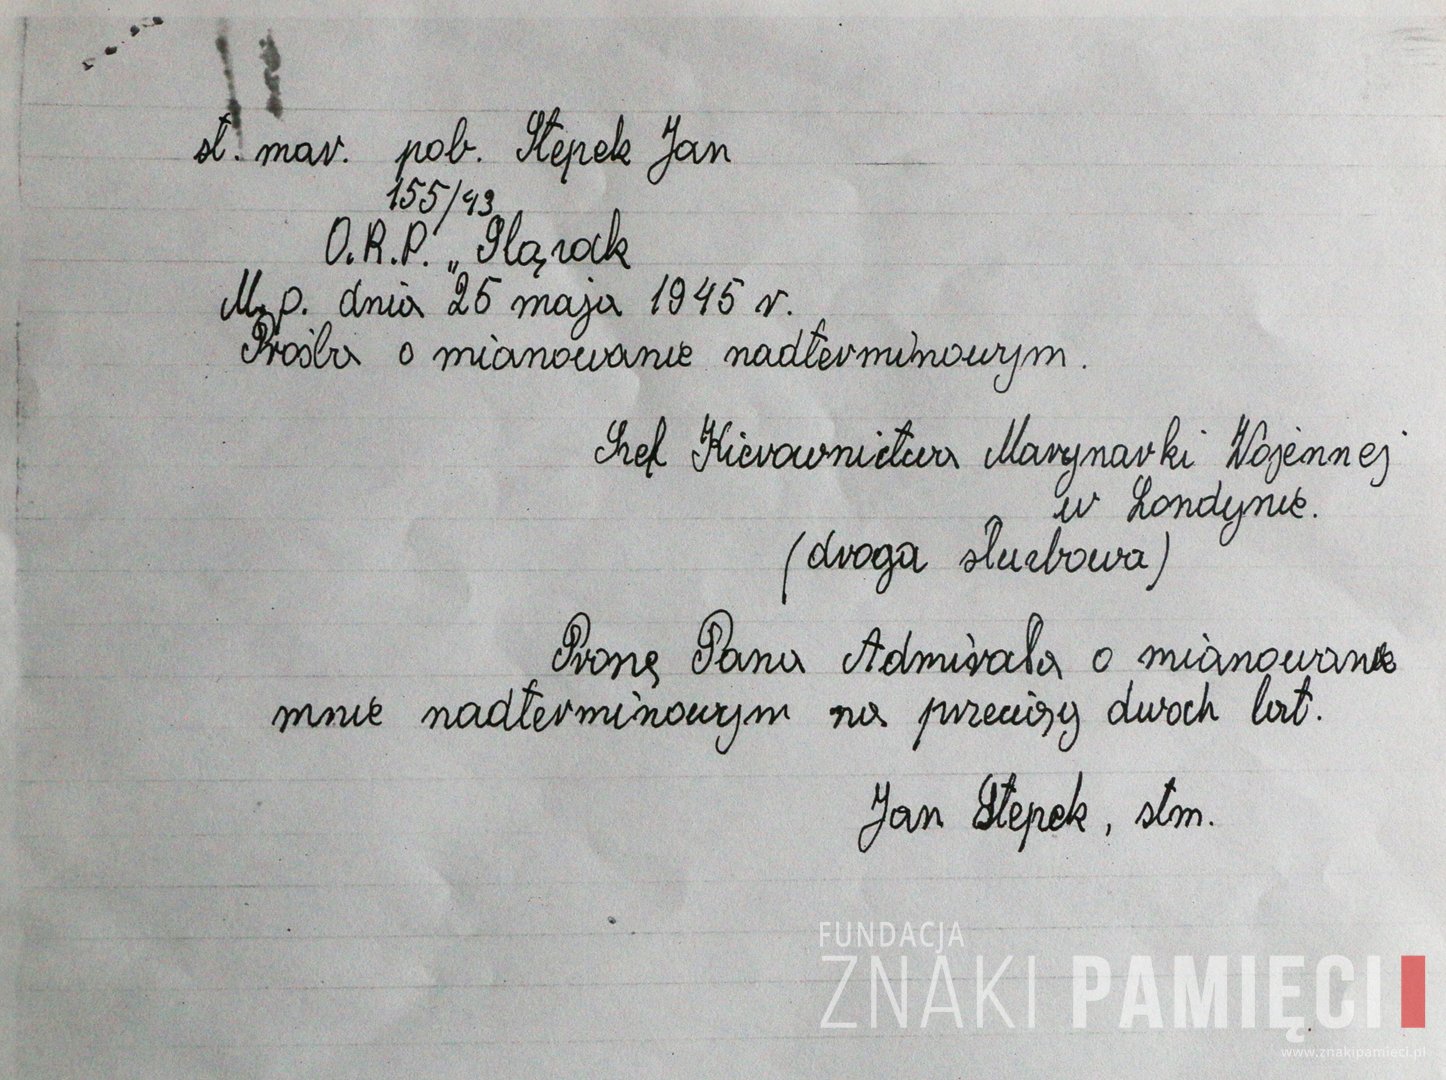 st. mar. pob. Stępek Jan
155/43
O.R.P. „Ślązak
M.p. dnia 25 maja 1945 r.
Prośba o mianowanie nadterminowym.
Szef Kierownictwa Marynarki Wojennej
w Londynie.
(droga służbowa)
Proszę Pana Admirała o mianowanie
mnie nadterminowym na przeciąg dwóch lat.
Jan Stępek, stm.
FUNDACJA
ZNAKI PAMIĘCI
www.znakipamieci.pl